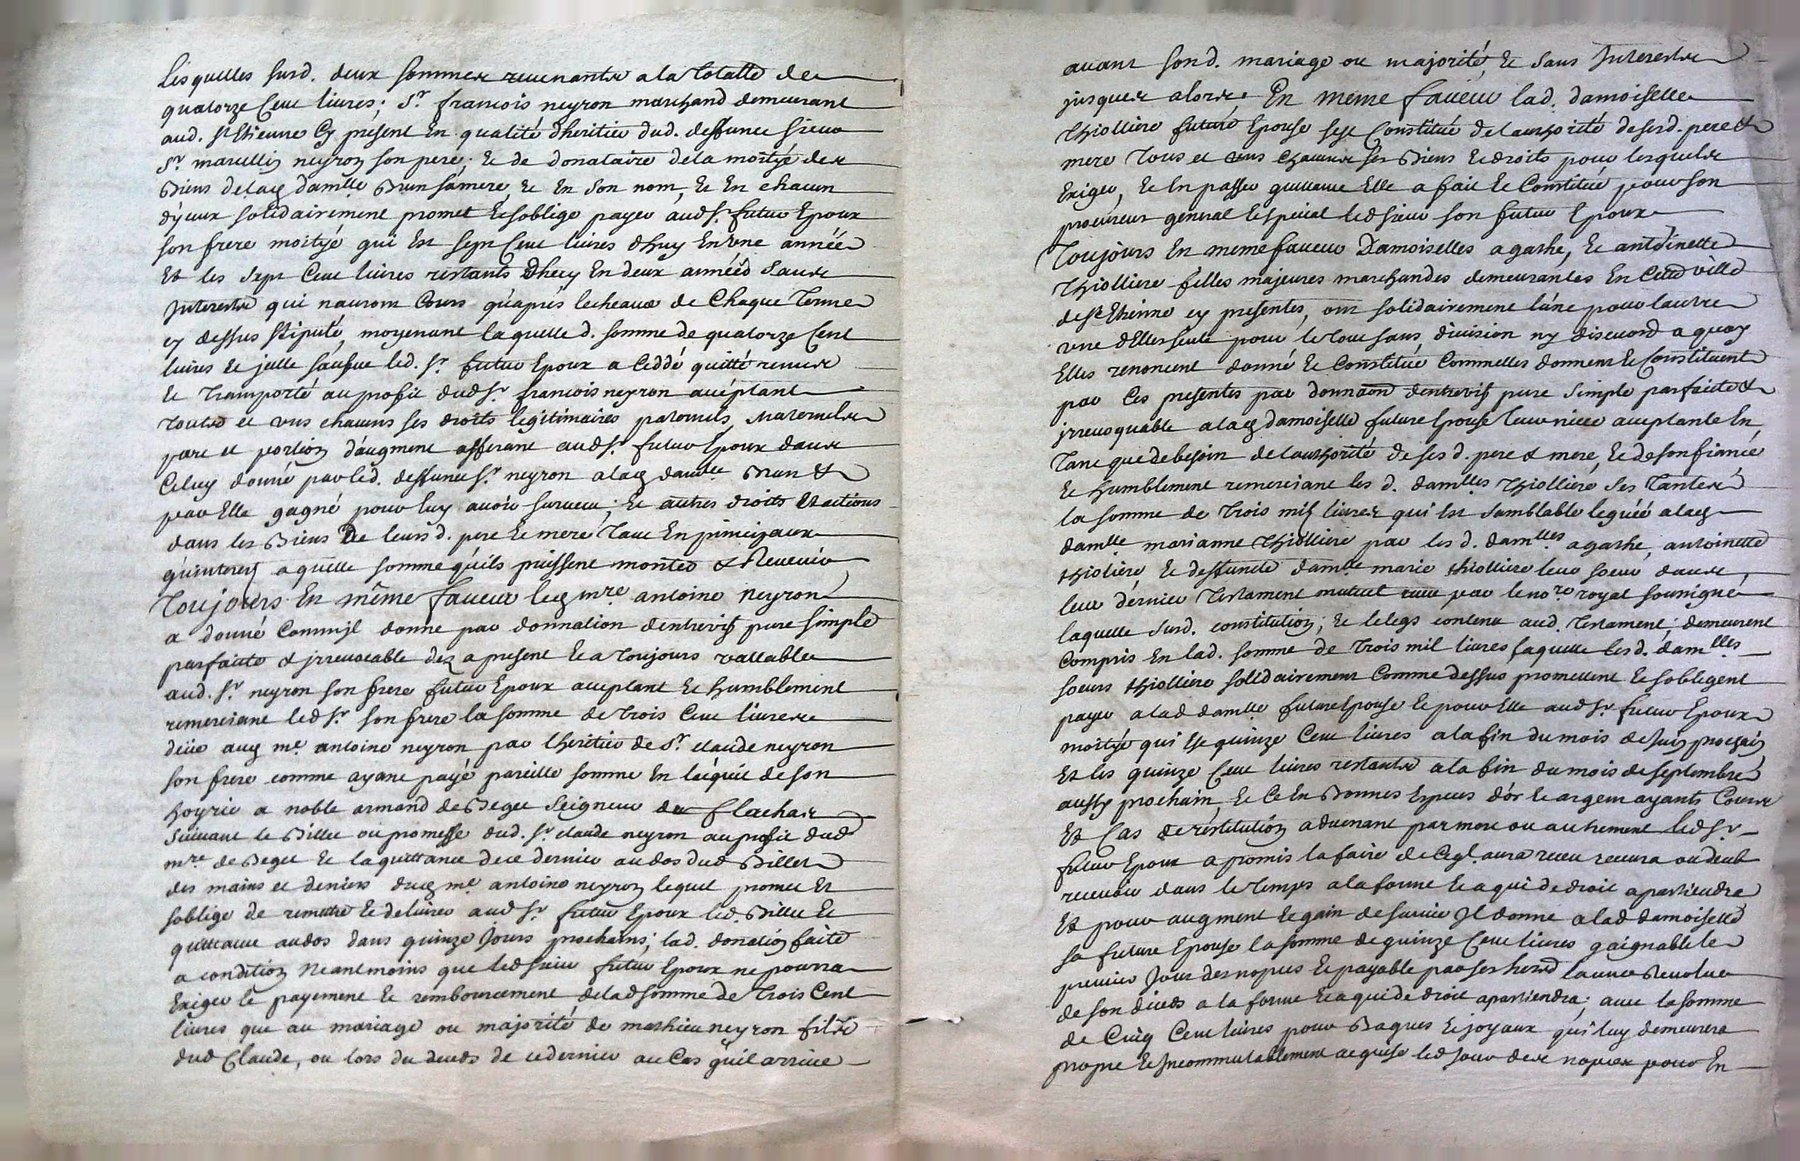 Lesquelles surd. deux sommes revenantes a la totalle de
quatorze Cent livres; Sr. francois neyron marchand demeurant
aud. St Etienne Cy présent En qualité dheritier dud. deffunct sieur
Sr. marcellin neyron son pere; et de donataire de la moityé des
Biens de lad damlle Brun sa mere, et En son nom, et En chacun
dyceux solidairement promet et soblige payer aud Sr. futur Epoux
son frere moityé qui est sept Cent livres dhuy En une année
Et les sept Cent livres restants dhuy En deux années sans
Interests qui nauront Cours qu'après lecheance de Chaque Terme
cy dessus stipulé, moyenant laquelle d. somme de quatorze Cent
livres et jcelle sauf led. Sr. futur Epoux a Ceddé quitté remis
et Transporté au profit dud Sr. francois neyron acceptant
Touts et uns chacuns ses droits legitimaires paternels, Maternels
part et portion d'augment afferant aud Sr. futur Epoux dans
Celuy donné par led. deffunct Sr. neyron a lad damlle Brun et
par Elle gagné pour luy avoir survecu; et autres droits et actions
dans les Biens De leurs d. pere et mere Tant En principaux
qu'interets a quelle somme qu'ils puissent monter et Revenir
Toujours En même faveur led mre antoine neyron
a donné Comm'jl donne par donnation d'entrevifs pure simple
parfaite et jrrevocable dez a present et a Toujours vallable
aud. Sr. neyron son frere futur Epoux acceptant et humblement
remerciant led Sr. son frere la somme de Trois Cent livres
düe aud me antoine neyron par lheritier de Sr. claude neyron
son frere comme ayant payé pareille somme En l'acquit de son
hoyrie a noble armand de Beget Seigneur du Flachas
suivant le Billet ou promesse dud. Sr claude neyron au profit dud
mre de Beget et la quittance de ce dernier au dos dud Billet
des mains et deniers dud me antoine neyron lequel promet Et
soblige de remettre et delivrer aud Sr. futur Epoux led. Billet et
quittance au dos dans quinze jours prochains; lad. donation faite
a condition Neantmoins que led sieur futur Epoux ne pourra
Exiger le payement et remboursement de lad somme de Trois Cent
livres que au mariage ou majorité de mathieu neyron fils
dud Claude, ou lors du deceds de ce dernier au Cas qu'il arrive
avant sond. mariage ou majorité, et sans Interests
jusques alors; En meme faveur lad. damoiselle
Thiolliere future Epouse sest Constitué de l'authorité de sesd. pere et
mere Tous et uns chacuns ses Biens et droits pour lesquels
Exiger, et En passer quittance Elle a fait et Constitué pour son
procureur general et special led sieur son futur Epoux
Toujours En meme faveur Damoiselles agathe, et antoinette
Thiolliere filles majeures marchandes demeurantes En Cette ville
de St Etienne cy presentes, ont solidairement l'une pour l'autre
une d'Elles seule pour le tout sans division ny discution a quoy
Elles renoncent donné et Constitué Comm'elles donnent et Constituent
par Ces presentes par donnaon dentrevifs pure simple parfaite et
jrrevoquable a lad damoiselle future Epouse leur niece acceptante En
Tant que de besoin de l'authorité de ses d. pere et mere, et de son fiancé
et humblement remerciant les d. damlles Thiolliere ses Tantes
la somme de Trois mil livres qui est semblable leguéé a lad
damlle marianne Thiolliere par les d. damlles agathe, antoinette
thioliere et deffunte damlle marie thiolliere leur soeur dans
leur dernier Testament mutuel reçu par le nore royal soussigné
laquelle surd. constitution; et le legs contenu aud. Testament; demeurent
Compris En lad. somme de Trois mil livres laquelle lesd. damlles
soeurs thiolliere solidairement Comme dessus promettent et sobligent
payer a lad damlle future Epouse et pour Elle aud Sr. futur Epoux
moityé qui est quinze Cent livres a la fin du mois de juin prochain
Et les quinze Cent livres restants a la fin du mois de septembre
aussy prochain et Ce En Bonnes Especes d'or et argent ayants Cours
Et Cas de restitution advenant par mort ou autrement led Sr.
futur Epoux a promis la faire de Ce ql. aura receu recevra ou deub
recevoir dans le Temps a la forme et a qui de droit apartiendra
Et pour augment et gain de survie Jl donne a lad damoiselle
sa future Epouse la somme de quinze Cent livres gaignable le
premier jour des nopces et payable par ses heritrs lannée Revolue
de son deceds a la forme et a qui de droit apartiendra; avec la somme
de Cinq Cent livres pour Bagues et joyaux qu'i luy demeurera
propre et Incommutablement acquise led jour des nopces pour En